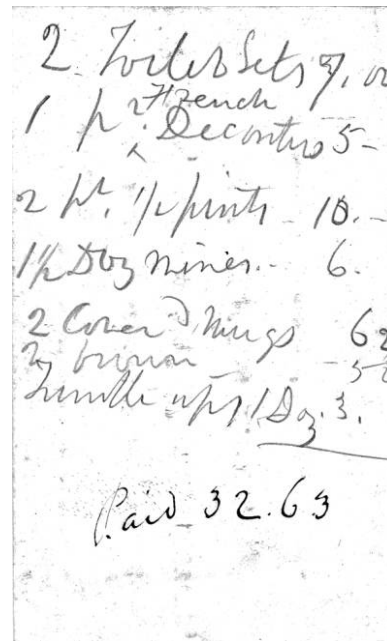 2 Toilet Sets 7.00
1 pr. French Decanters 5-
2 pt. 1/2 pints 10.-
1 1/2 Doz Wines.- 6.
2 Cover'd Mugs 62
2 brown - 5
Tumble ups 1 Doz. 3.
Paid 32.63